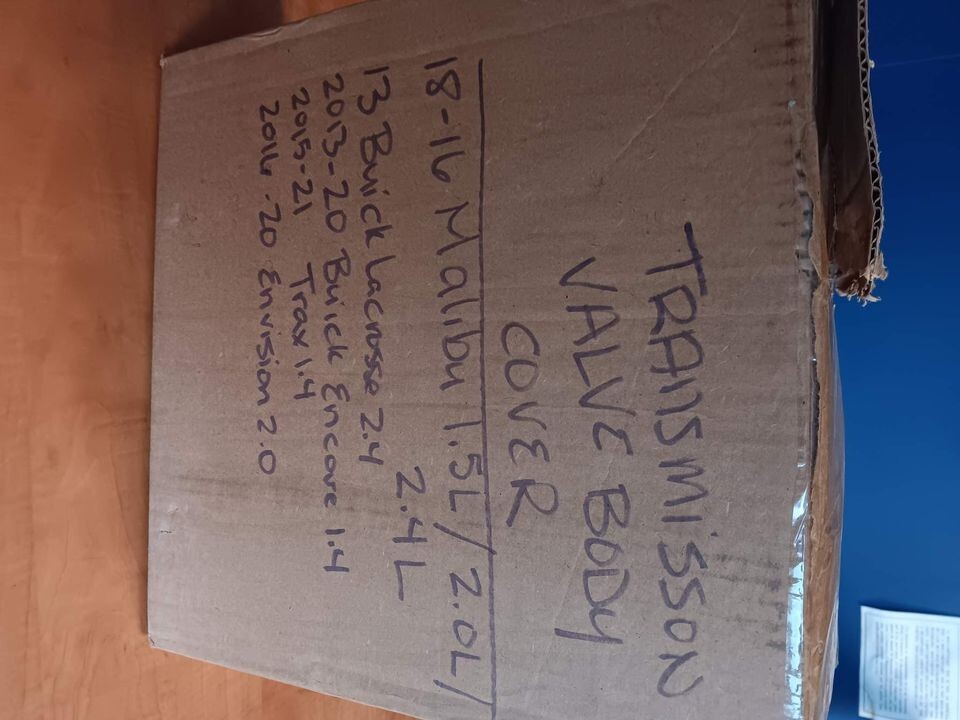 TRANSMISSON
VALVE BODY
COVER
18-16 Malibu 1.5L/2.0L/
2.4L
13 Buick Lacrosse 2.4
2013-20 Buick Encore 1.4
2015-21 Trax 1.4
2016-20 Envision 2.0